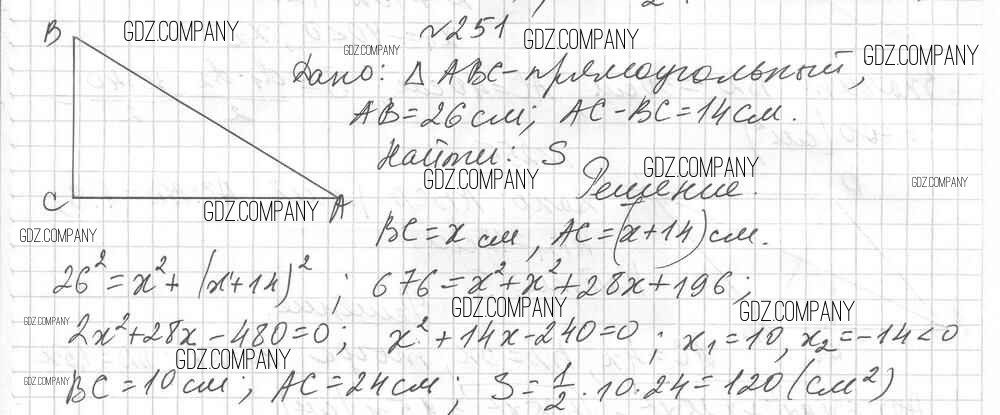 №251
B
Дано: △ ABC - прямоугольный,
AB = 26 см; AC - BC = 14 см.
Найти: S
Решение.
C
A
BC = x см, AC = (x+14) см.
26² = x² + (x+14)²; 676 = x² + x² + 28x + 196;
2x² + 28x - 480 = 0; x² + 14x - 240 = 0; x₁ = 10, x₂ = -14 < 0
BC = 10 см; AC = 24 см; S = 1/2 · 10 · 24 = 120 (см²)
GDZ.COMPANY
GDZ.COMPANY
GDZ.COMPANY
GDZ.COMPANY
GDZ.COMPANY
GDZ.COMPANY
GDZ.COMPANY
GDZ.COMPANY
GDZ.COMPANY
GDZ.COMPANY
GDZ.COMPANY
GDZ.COMPANY
GDZ.COMPANY
GDZ.COMPANY